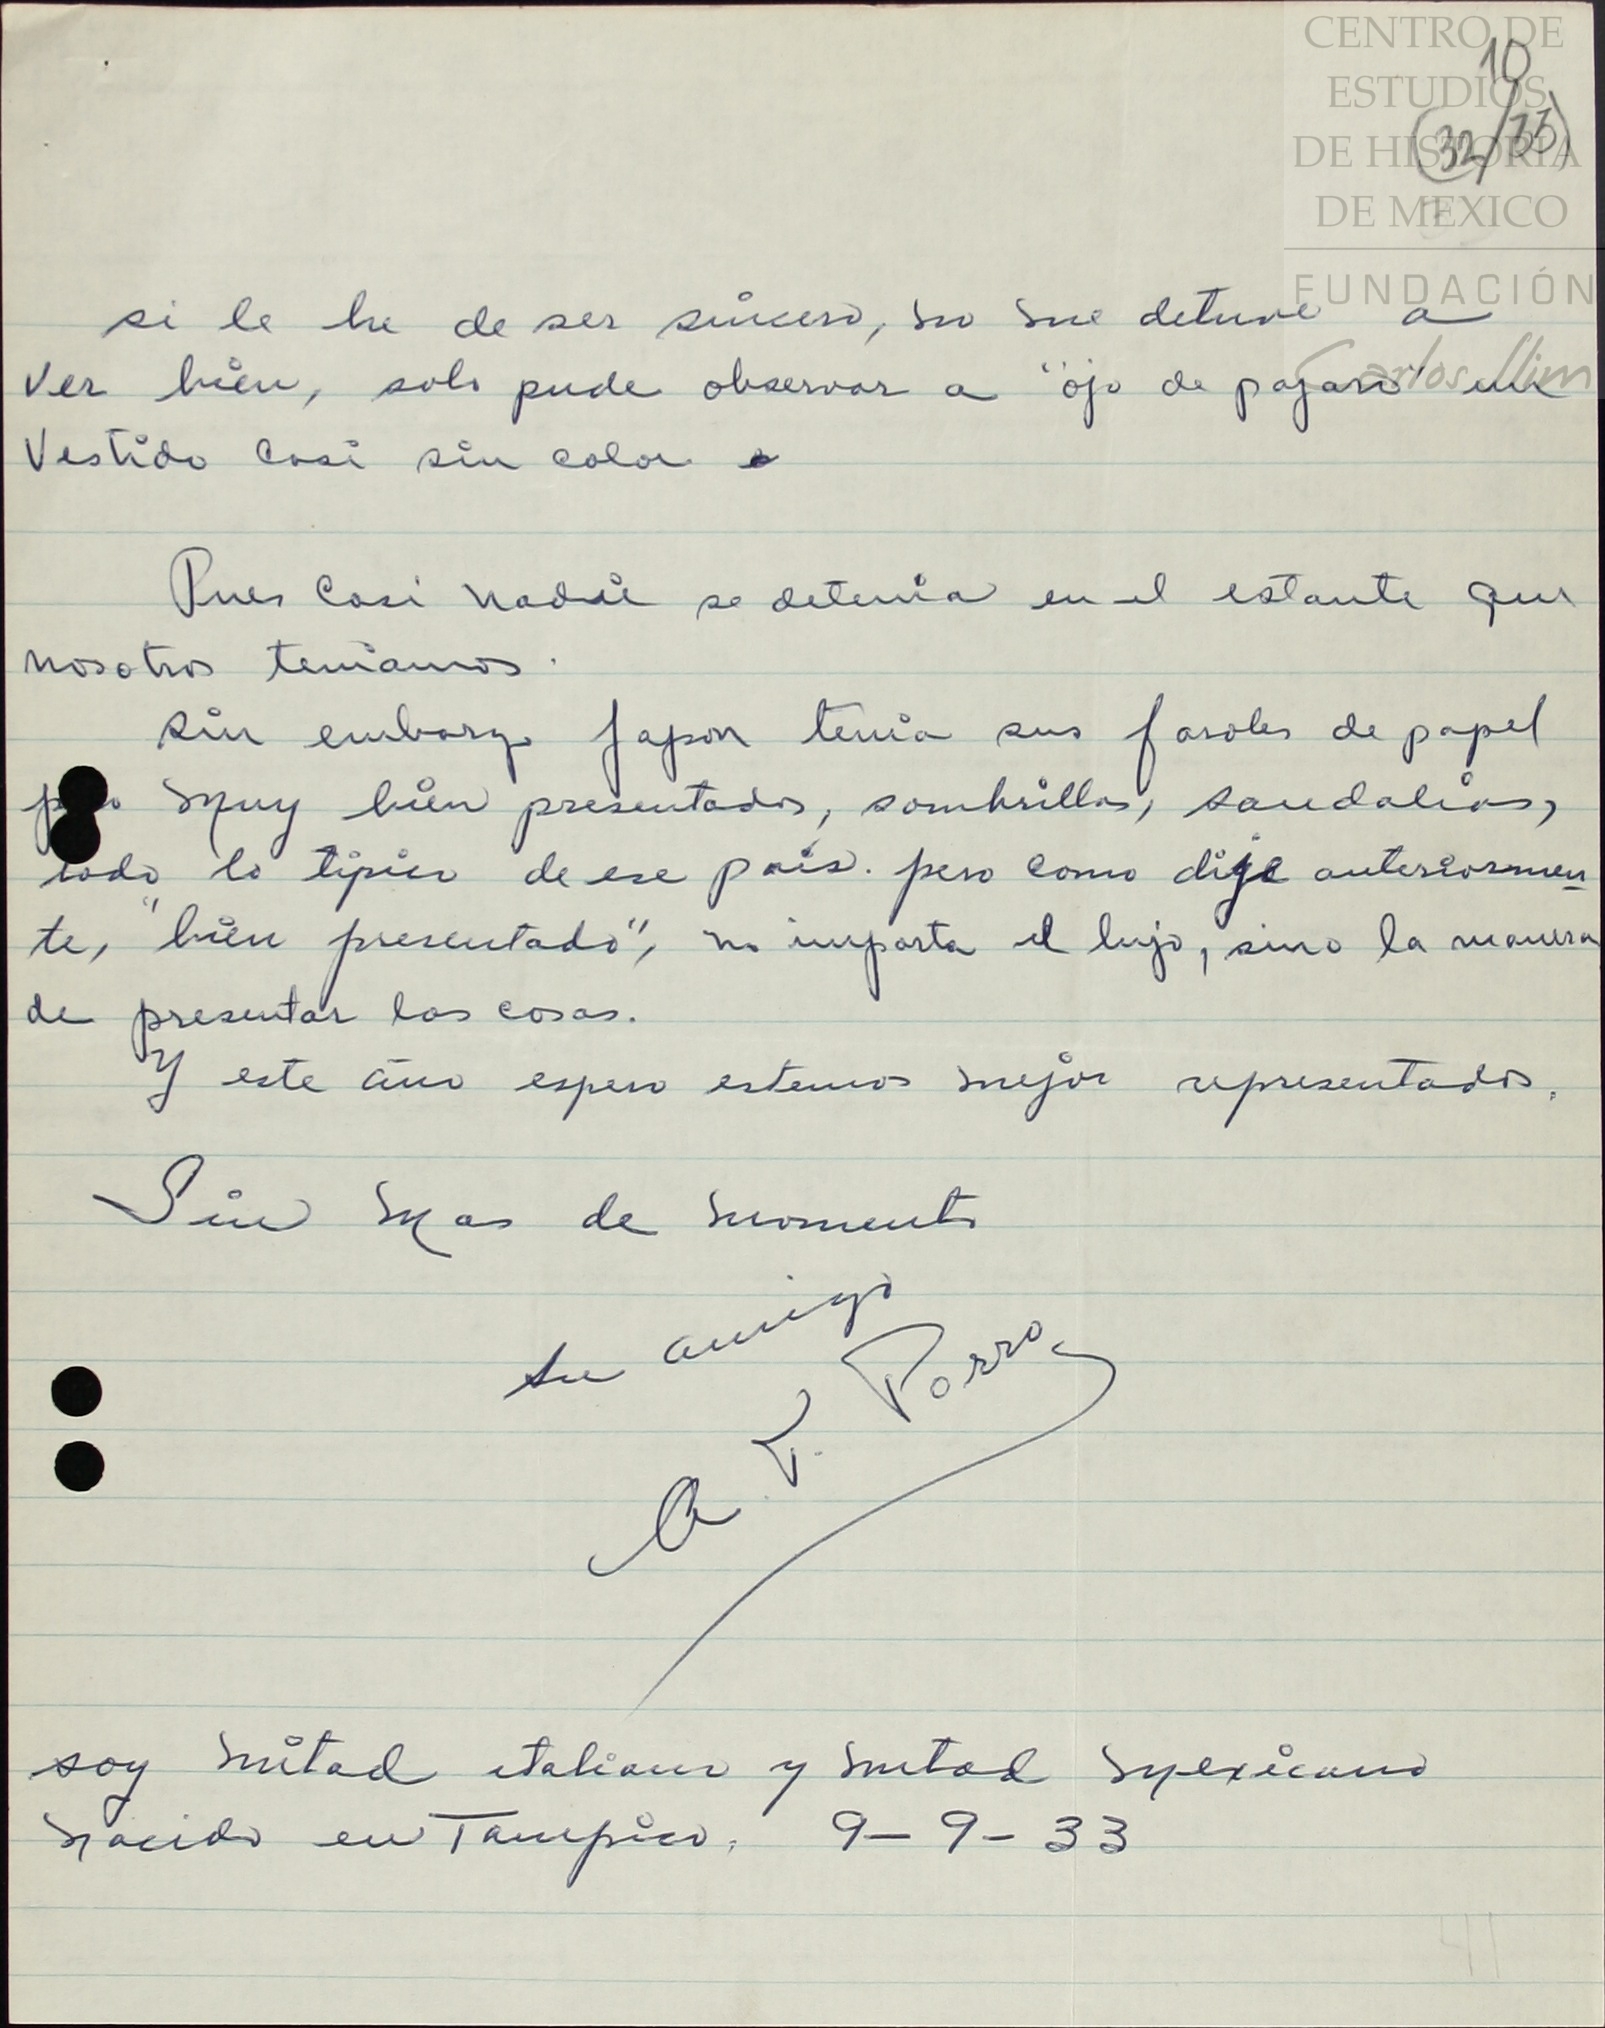 CENTRO DE
ESTUDIOS
DE HISTORIA
DE MEXICO
FUNDACIÓN
Carlos Slim
10
32/33
si le he de ser sincero, no me detuve a
ver bien, solo pude observar a "ojo de pajaro" un
Vestido casi sin color
Pues casi nadie se detenia en el estante que
nosotros teniamos.
sin embargo Japon tenia sus faroles de papel
muy bien presentados, sombrillas, sandalias,
todo lo tipico de ese pais. pero como dije anteriormen
te, "bien presentado", no importa el lujo, sino la manera
de presentar las cosas.
Y este año espero estemos mejor representados.
Sin mas de momento
su amigo
A. F. Porro
soy mitad italiano y mitad mexicano
nacido en Tampico. 9-9-33